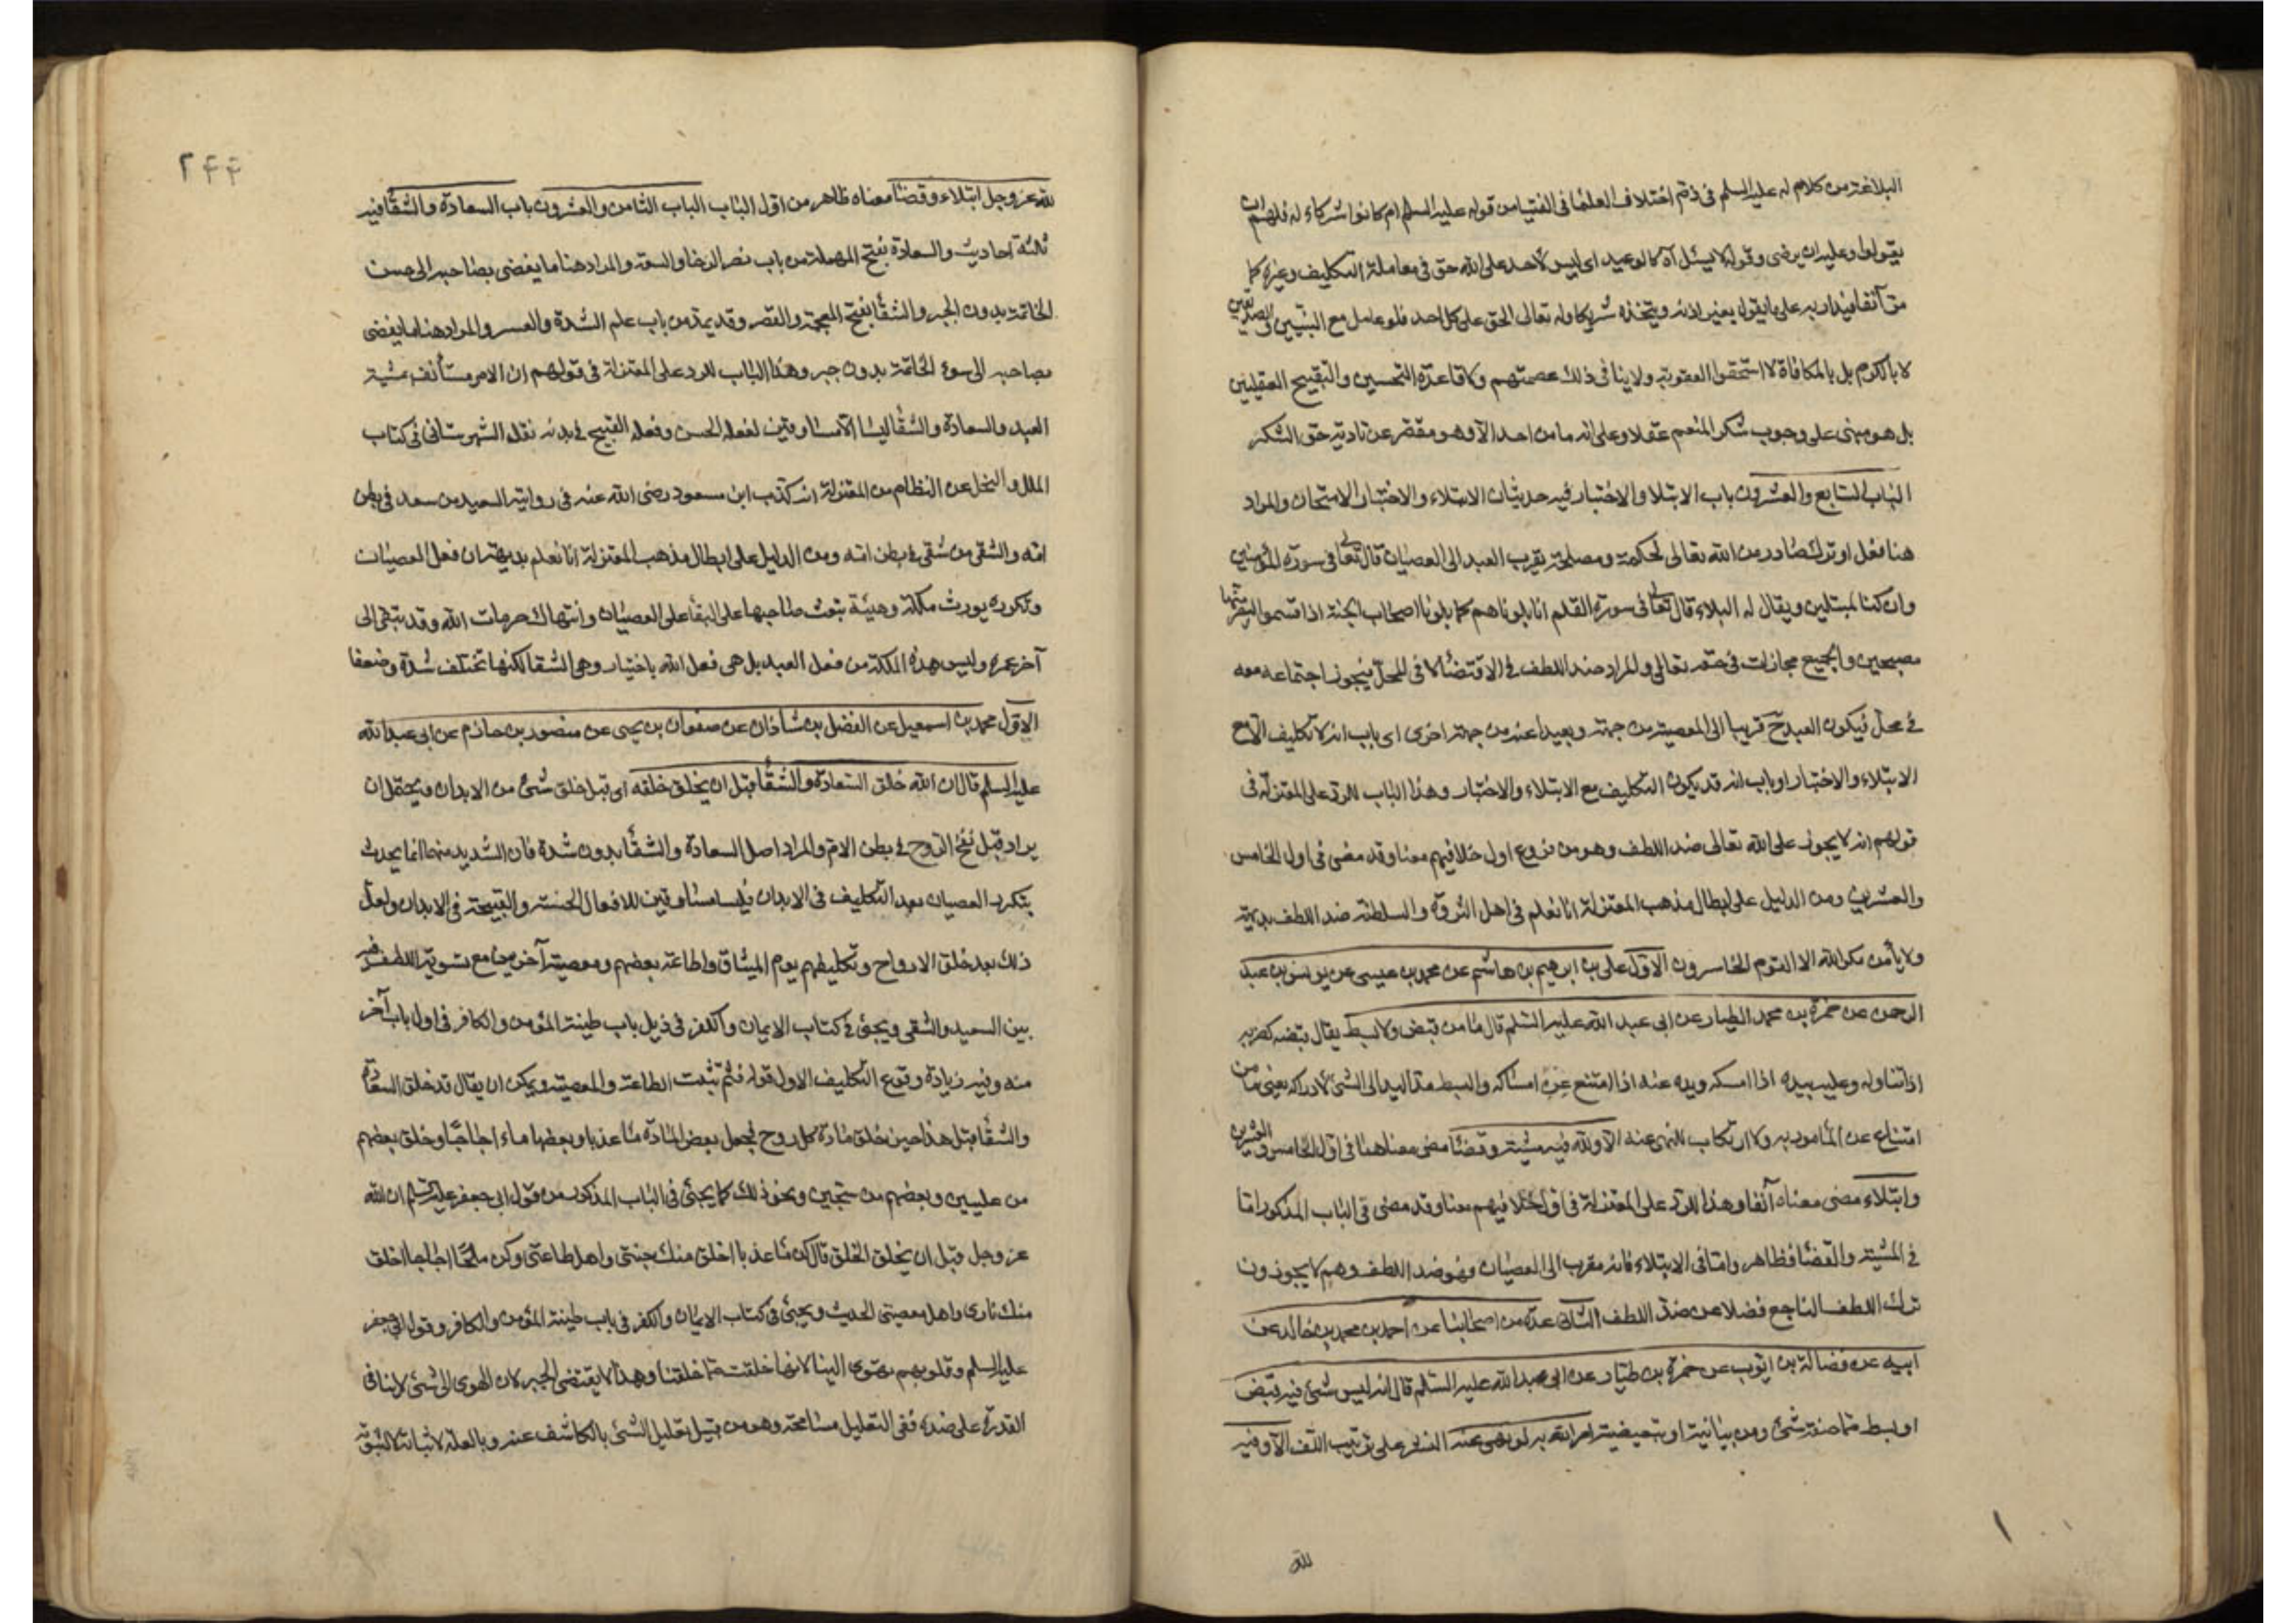 البلاغة من كلام له عليه السلم فى ذم اختلاف العلما فى الفتيا من قوله عليه السلم ام كانوا شركاء له فلهم ان
يقولوا وعليه ان يرضى وقوله لا يسئل اه كالوعيد اى ليس لاحد على الله حق فى معاملة التكليف وغيره كما
مر آنفا فيدان به على ما يقول بغير اذنه ويتخذه شريكا وله تعالى الحق على كل احد فلو عامل مع النبيين والصديقين
لا بالكرم بل بالمكافاة لاستحقوا العقوبة ولا ينافى ذلك عصمتهم ولا قاعدة التحسين والتقبيح العقليين
بل هو مبنى على وجوب شكر المنعم عقلا وعلى انه ما من احد الا وهو مقصر عن تادية حق الشكر
الباب السابع والعشرون باب الابتلا والاختبار فيه حديثان الابتلاء والاختبار الامتحان والمراد
هنا فعل او ترك صادر من الله تعالى لحكمة ومصلحة يقرب العبد الى العصيان قال تعالى فى سورة المؤمنين
وان كنا لمبتلين ويقال له البلاء قال تعالى فى سورة القلم انا بلوناهم كما بلونا اصحاب الجنة اذ اقسموا ليصرمنها
مصبحين والجميع مجازات فى حقه تعالى والمراد ضد اللطف فى الاقتضا لا فى المحل فيجوز اجتماعه معه
فى محل فيكون العبد ح قريبا الى المعصية من جهة وبعيدا عنه من جهة اخرى اى باب انه لا تكليف الا مع
الابتلاء والاختبار او باب انه قد يكون التكليف مع الابتلاء والاختبار وهذا الباب للرد على المعتزلة فى
قولهم انه لا يجوز على الله تعالى ضد اللطف وهو من فروع اول خلافيهم معنا وقد مضى فى اول الخامس
والعشرين ومن الدليل على ابطال مذهب المعتزلة انا نعلم فى اهل الثروة والسلطنة ضد اللطف بديهة
ولا يأمن مكر الله الا القوم الخاسرون الاول على بن ابرهيم بن هاشم عن محمد بن عيسى عن يونس بن عبد
الرحمن عن حمزة بن محمد الطيار عن ابى عبد الله عليه السلم قال ما من قبض ولا بسط يقال قبضه كضربه
اذا تناوله وعليه بيده اذا امسكه ويده عنه اذا امتنع عن امساكه والبسط مد اليد الى الشئ لادراكه يعنى ما من
امتناع عن المأمور به ولا ارتكاب للنهى عنه الا ولله فيه مشية وقضا مضى معناهما فى اول الخامس والعشرين
وابتلاء مضى معناه آنفا وهذا للرد على المعتزلة فى اول خلافيهم معنا وقد مضى فى الباب المذكور اما
فى المشية والقضا فظاهر واما فى الابتلاء فانه مقرب الى العصيان فهو ضد اللطف وهم لا يجوزون
ترك اللطف الناجع فضلا عن ضد اللطف الثانى عدة من اصحابنا عن احمد بن محمد بن خالد عن
ابيه عن فضالة بن ايوب عن حمزة بن طيار عن ابى عبد الله عليه السلم قال انه ليس شئ فيه قبض
او بسط مما صفة شئ ومن بيانية او تبعيضية امر الله به او نهى عنه النشر على ترتيب اللف الا وفيه
لله
٢٤٤
لله عز وجل ابتلاء وقضا معناه ظاهر من اول الباب الباب الثامن والعشرون باب السعادة والشقا فيه
ثلثة احاديث والسعادة بفتح المهملة من باب نصر الرخا والسعة والمراد هنا ما يفضى بصاحبه الى حسن
الخاتمة بدون الجبر والشقا بفتح المعجمة والقصر وقد يمد من باب علم الشدة والعسر والمراد هنا ما يفضى
بصاحبه الى سوء الخاتمة بدون جبر وهذا الباب للرد على المعتزلة فى قولهم ان الامر مستأنف بمشية
العبد والسعادة والشقا ليسا الا مساوقتين لفعله الحسن وفعله القبيح فى بدنه نقل الشهرستانى فى كتاب
الملل والنحل عن النظام من المعتزلة انه كذب ابن مسعود رضى الله عنه فى روايته السعيد من سعد فى بطن
امه والشقى من شقى فى بطن امه ومن الدليل على ابطال مذهب المعتزلة انا نعلم بديهة ان فعل العصيان
وتكرره يورث ملكة وهيئة تبعث صاحبها على البقا على العصيان وانتهاك حرمات الله وقد تبقى الى
آخر عمره وليس هذه الملكة من فعل العبد بل هى فعل الله باختيار وهى الشقا لكنها تختلف شدة وضعفا
الاول محمد بن اسمعيل عن الفضل بن شاذان عن صفوان بن يحيى عن منصور بن حازم عن ابى عبد الله
عليه السلم قال ان الله خلق السعادة والشقا قبل ان يخلق خلقه اى قبل خلق شئ من الابدان ويحتمل ان
يراد قبل نفخ الروح فى بطن الام والمراد اصل السعادة والشقا بدون شدة فان الشديد منهما انما يحدث
بتكرر العصيان بعد التكليف فى الابدان فليسا مساوقين للافعال الحسنة والقبيحة فى الابدان ولعل
ذلك بعد خلق الارواح وتكليفهم يوم الميثاق واطاعة بعضهم ومعصية آخرين مع تسوية اللطف فيه
بين السعيد والشقى ويجئ فى كتاب الايمان والكفر فى ذيل باب طينة المؤمن والكافر فى اول باب آخر
منه وفيه زيادة وقوع التكليف الاول قوله فثم ثبتت الطاعة والمعصية ويمكن ان يقال قد خلق السعادة
والشقا قبل هذا حين خلق مادة كل روح لجعل بعض المادة ماء عذبا وبعضها ماء اجاجا وخلق بعضهم
من عليين وبعضهم من سجين ونحو ذلك كما يجئ فى الباب المذكور من قول ابى جعفر عليه السلم ان الله
عز وجل قبل ان يخلق الخلق قال كن ماء عذبا اخلق منك جنتى واهل طاعتى وكن ملحا اجاجا اخلق
منك نارى واهل معصيتى الحديث ويجئ فى كتاب الايمان والكفر فى باب طينة المؤمن والكافر وقول ابى جعفر
عليه السلم وقلوبهم تهوى الينا لانها خلقت مما خلقنا وهذا لا يقتضى الجبر لان الهوى الى شئ لا ينافى
القدرة على ضده ففى التعليل مسامحة وهو من قبيل تعليل الشئ بالكاشف عنه وبالعلة لاثباته لا لثبوته